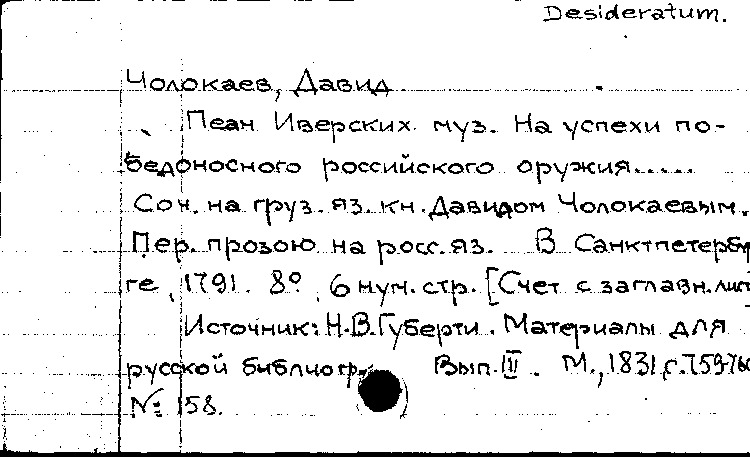 Desideratum.
Чолокаев, Давид
Пеан Иверских муз. На успехи по-
бедоносного российского оружия.....
Соч. на груз. яз. кн. Давидом Чолокаевым.
Пер. прозою на росс. яз. В Санктпетербу
ге, 1791. 8º, 6 нум. стр. [Счет с заглавн. лис
Источник: Н.В. Губерти. Материалы для
русской библиогр. Вып. III. М., 1831, с. 759-760
№ 158.